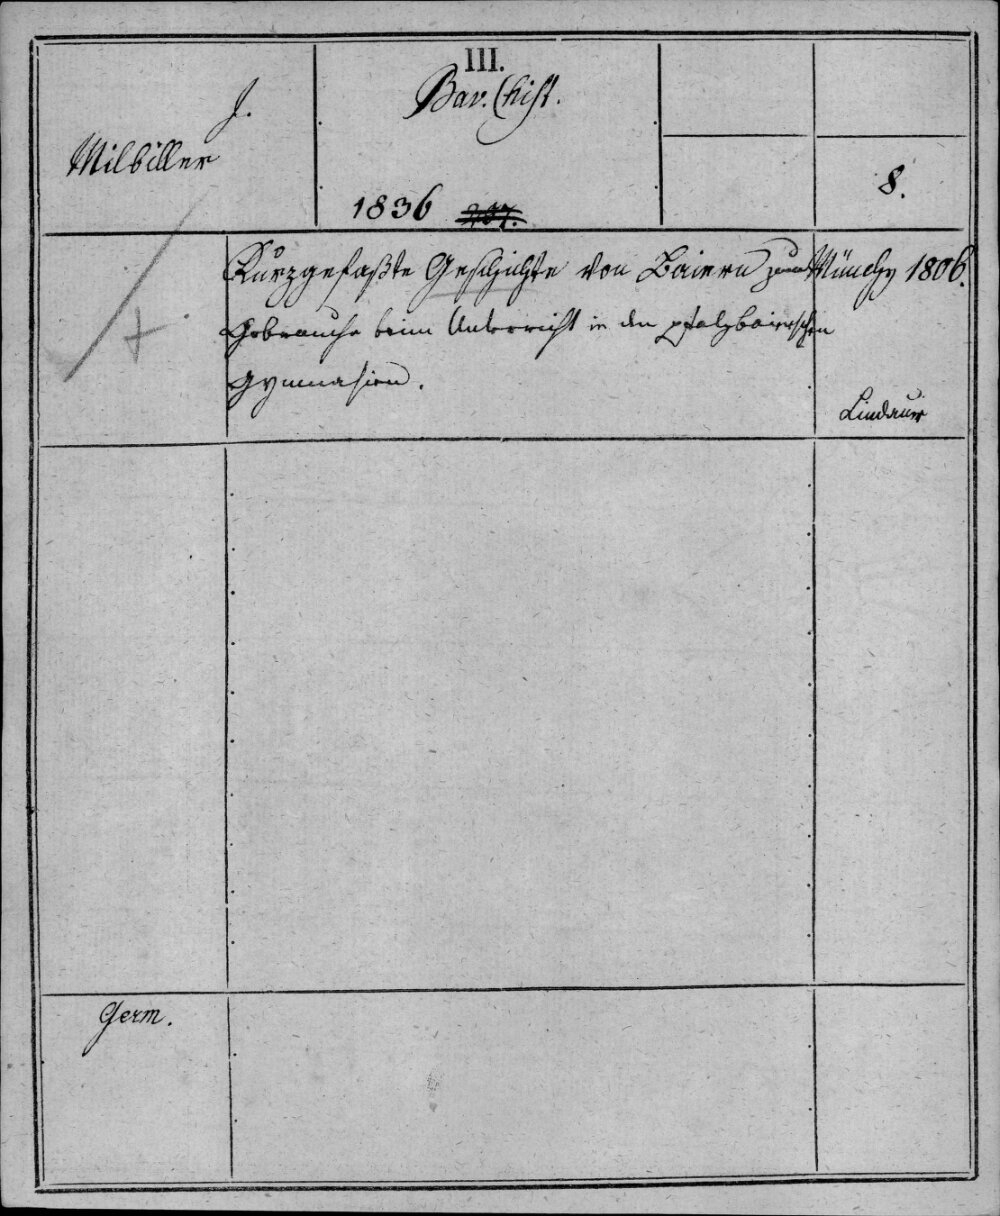 III.
Bav. Hist.
J.
Milbiller
8.
1836
Kurzgefaßte Geschichte von Baiern zum
Gebrauche beim Unterricht in den pfalzbairischen
Gymnasien.
München 1806.
Lindauer
Germ.